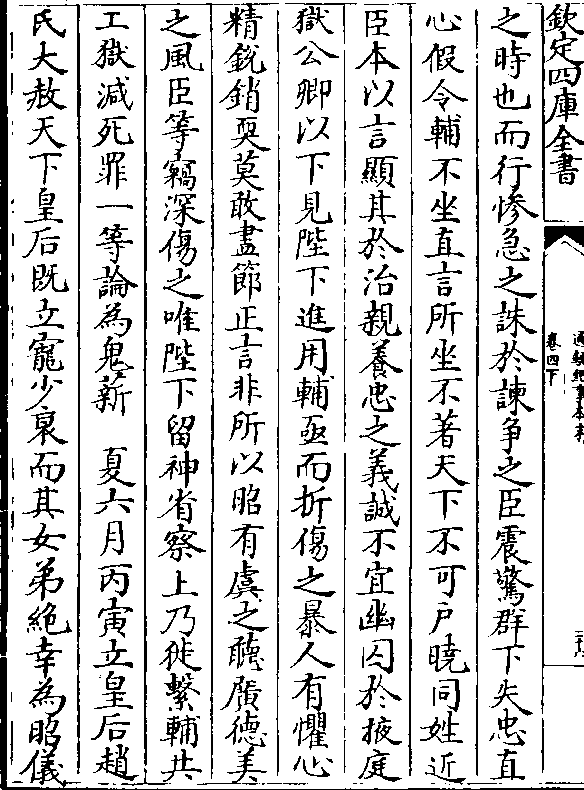 欽定四庫全書
通鑑紀事本末
卷四下
之時也而行慘急之誅於諫争之臣震驚群下失忠直
心假令輔不坐直言所坐不著天下不可戶曉同姓近
臣本以言顯其於治親養忠之義誠不宜幽囚於掖庭
獄公卿以下見陛下進用輔亟而折傷之暴人有懼心
精鋭銷耎莫敢盡節正言非所以昭有虞之聽廣德美
之風臣等竊深傷之唯陛下留神省察上乃徙繫輔共
工獄減死罪一等論為鬼薪　夏六月丙寅立皇后趙
氏大赦天下皇后既立寵少衰而其女弟絶幸為昭儀